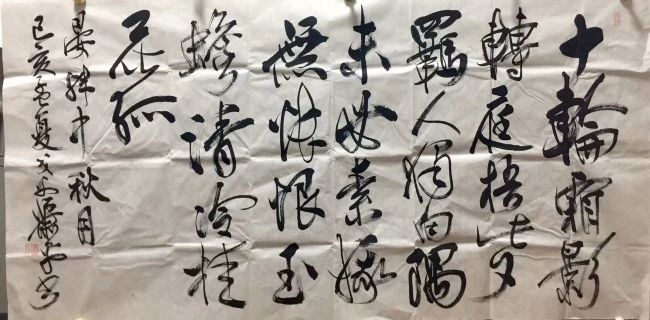 十輪霜影
轉庭梧此夕
羈人獨向隅
未必素娥
無悵恨玉
蟾清冷桂
花孤
晏殊中秋月
己亥孟夏書